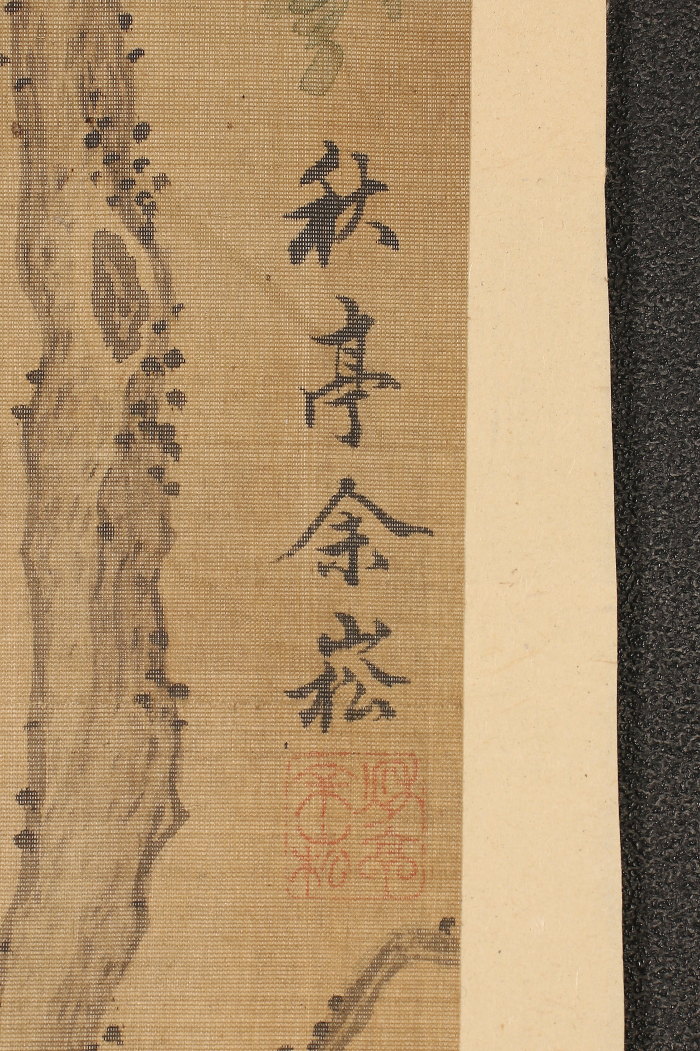 秋亭余崧